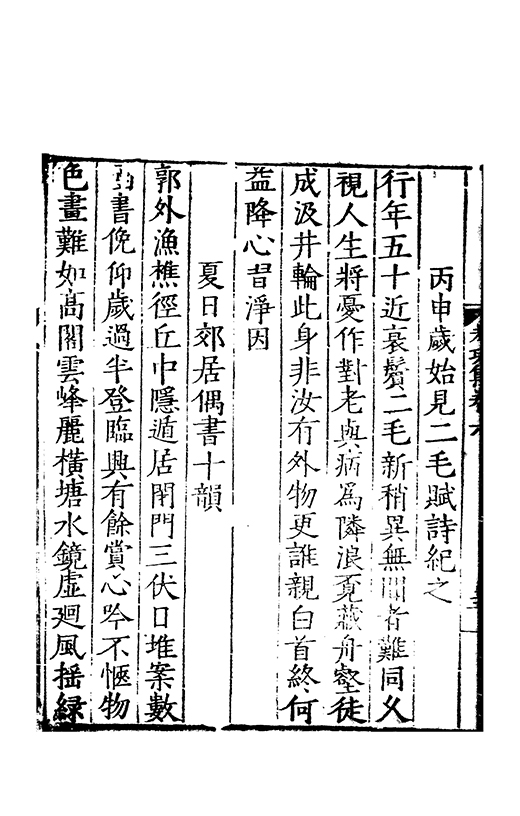 丙申歲始見二毛賦詩紀之
行年五十近衰鬢二毛新稍異無聞者難同久
視人生將憂作對老與病爲隣浪覔藏舟壑徒
成汲井輪此身非汝有外物更誰親白首終何
益降心昔淨因
夏日郊居偶書十韻
郭外漁樵徑丘中隱遁居閉門三伏日堆案數
書俛仰歲過半登臨興有餘賞心吟不愜物
色畫難如高閣雲峰麗橫塘水鏡虛廻風揺緑